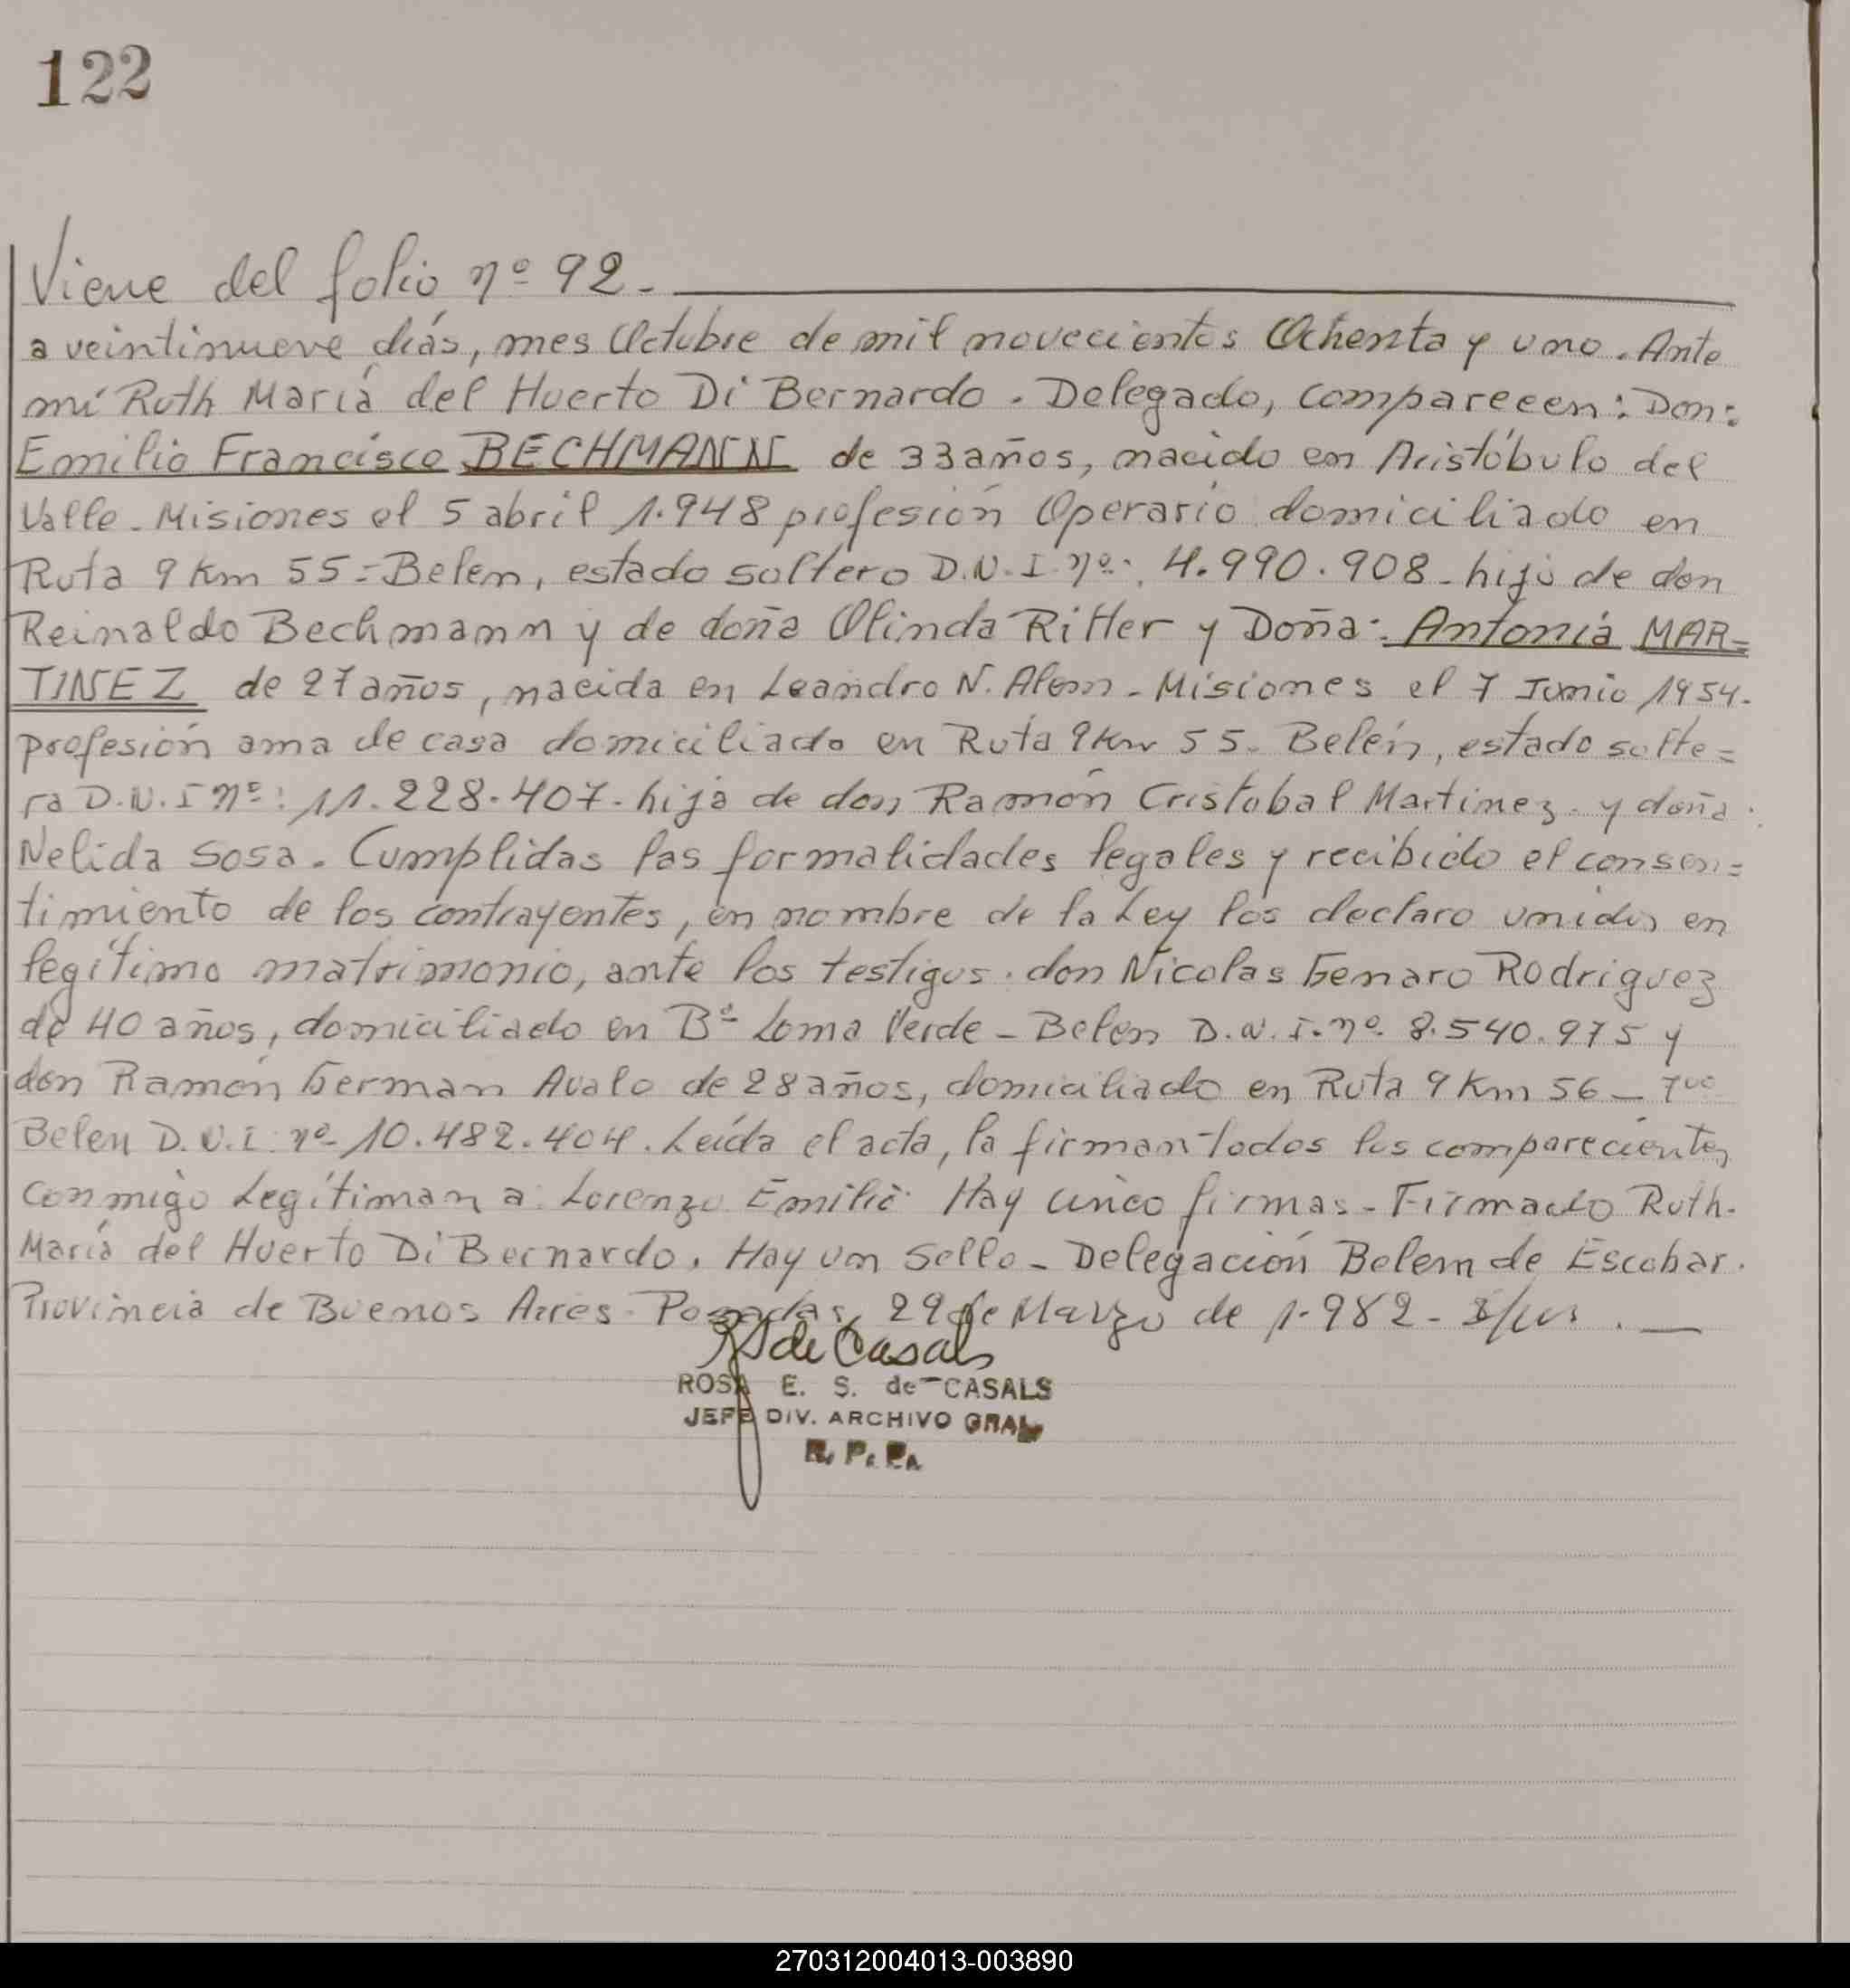 122
Viene del folio nº 92.-
a veintinueve días, mes Octubre de mil novecientos Ochenta y uno. Ante
mí Ruth María del Huerto Di Bernardo. Delegado, comparecen: Don:
Emilio Francisco BECHMANN de 33 años, nacido en Aristóbulo del
Valle - Misiones el 5 abril 1.948 profesión Operario domiciliado en
Ruta 9 Km 55 = Belen, estado soltero D.N.I nº: 4.990.908 - hijo de don
Reinaldo Bechmann y de doña Olinda Ritter y Doña: Antonia MAR=
TINEZ de 27 años, nacida en Leandro N. Alem - Misiones el 7 Junio 1954.
profesión ama de casa domiciliado en Ruta 9 Km 55. Belén, estado solte=
ra D.N.I nº: 11.228.407 - hija de don Ramón Cristobal Martinez - y doña
Nelida Sosa. Cumplidas las formalidades legales y recibido el consen=
timiento de los contrayentes, en nombre de la Ley los declaro unidos en
legítimo matrimonio, ante los testigos: don Nicolas Genaro Rodriguez
de 40 años, domiciliado en Bº Loma Verde - Belen D.N.I. nº 8.540.975 y
don Ramón German Avalo de 28 años, domiciliado en Ruta 9 Km 56 -
Belen D.N.I. nº 10.482.404. Leída el acta, la firman todos los comparecientes
conmigo Legítiman a: Lorenzo Emilio. Hay cinco firmas - Firmado Ruth.
María del Huerto Di Bernardo. Hay un Sello - Delegación Belem de Escobar.
Provincia de Buenos Aires - Posadas, 29 de Marzo de 1.982 -
R S de Casals
ROSA E. S. de CASALS
JEFE DIV. ARCHIVO GRAL
R. P. P.
270312004013-003890